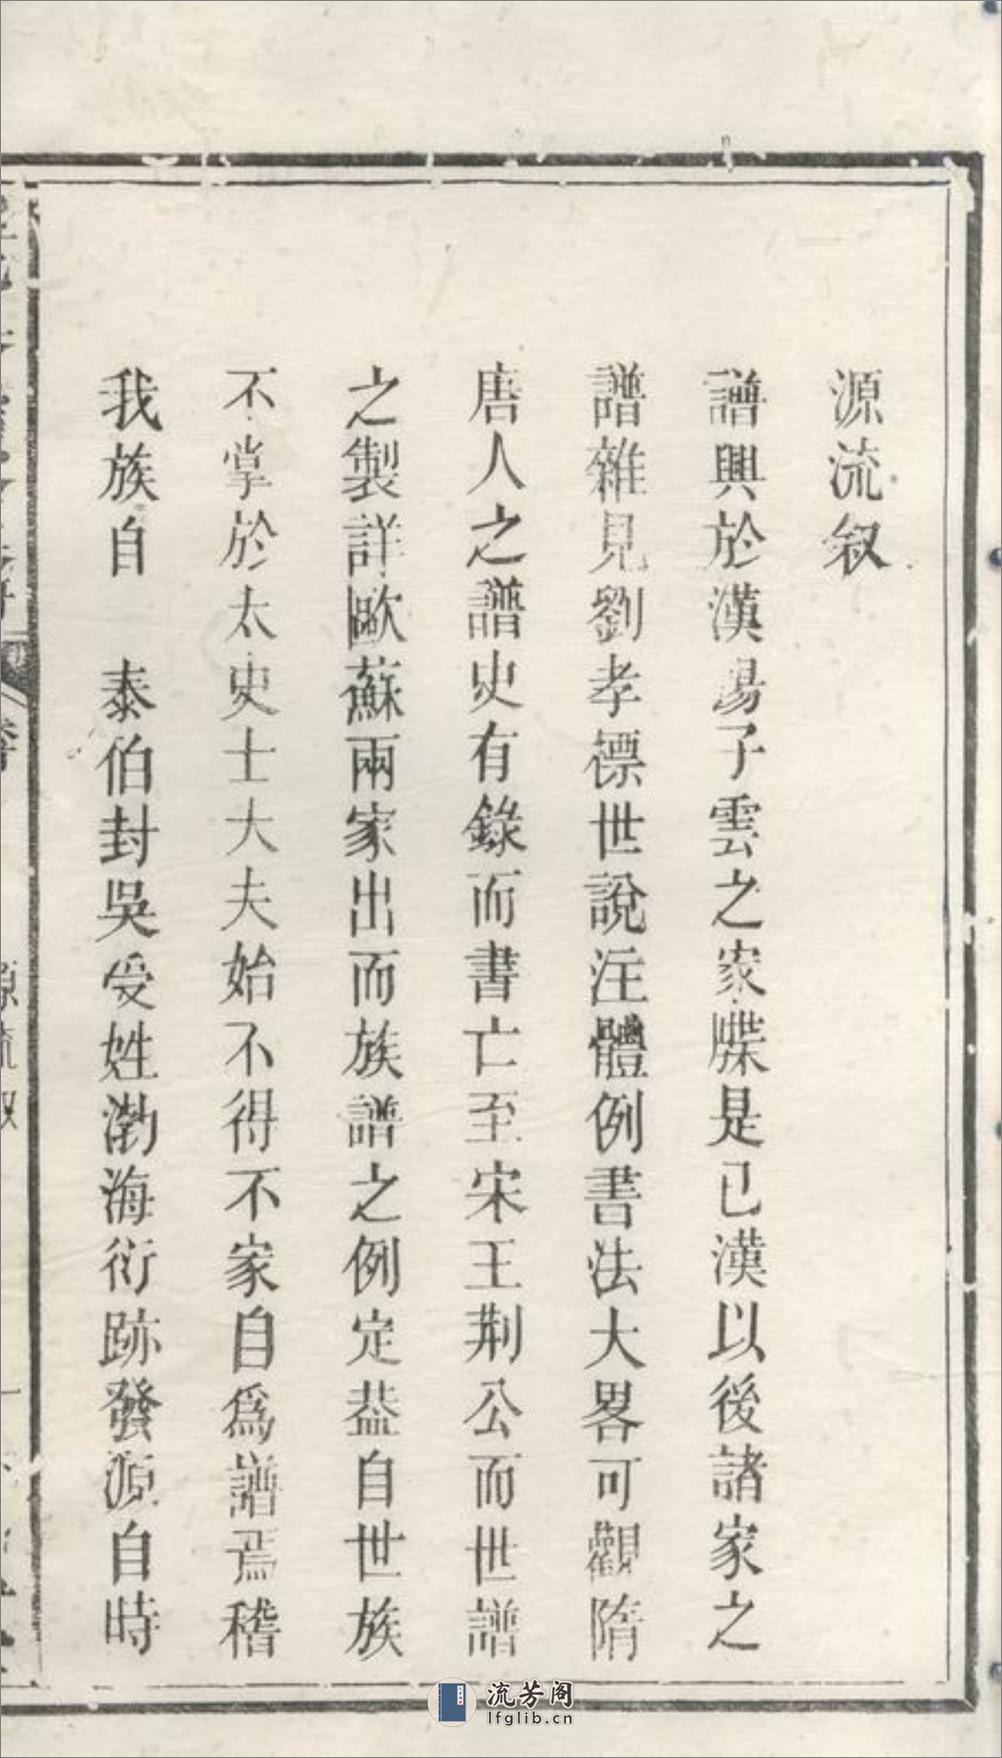 源流叙
譜興於漢揚子雲之家牒是已漢以後諸家之
譜雜見劉孝標世說注體例書法大畧可觀隋
唐人之譜史有錄而書亡至宋王荆公而世譜
之製詳歐蘇兩家出而族譜之例定葢自世族
不掌於太史士大夫始不得不家自爲譜焉稽
我族自 泰伯封吳受姓渤海衍跡發源自時
源流叙
流芳阁
lfglib.cn